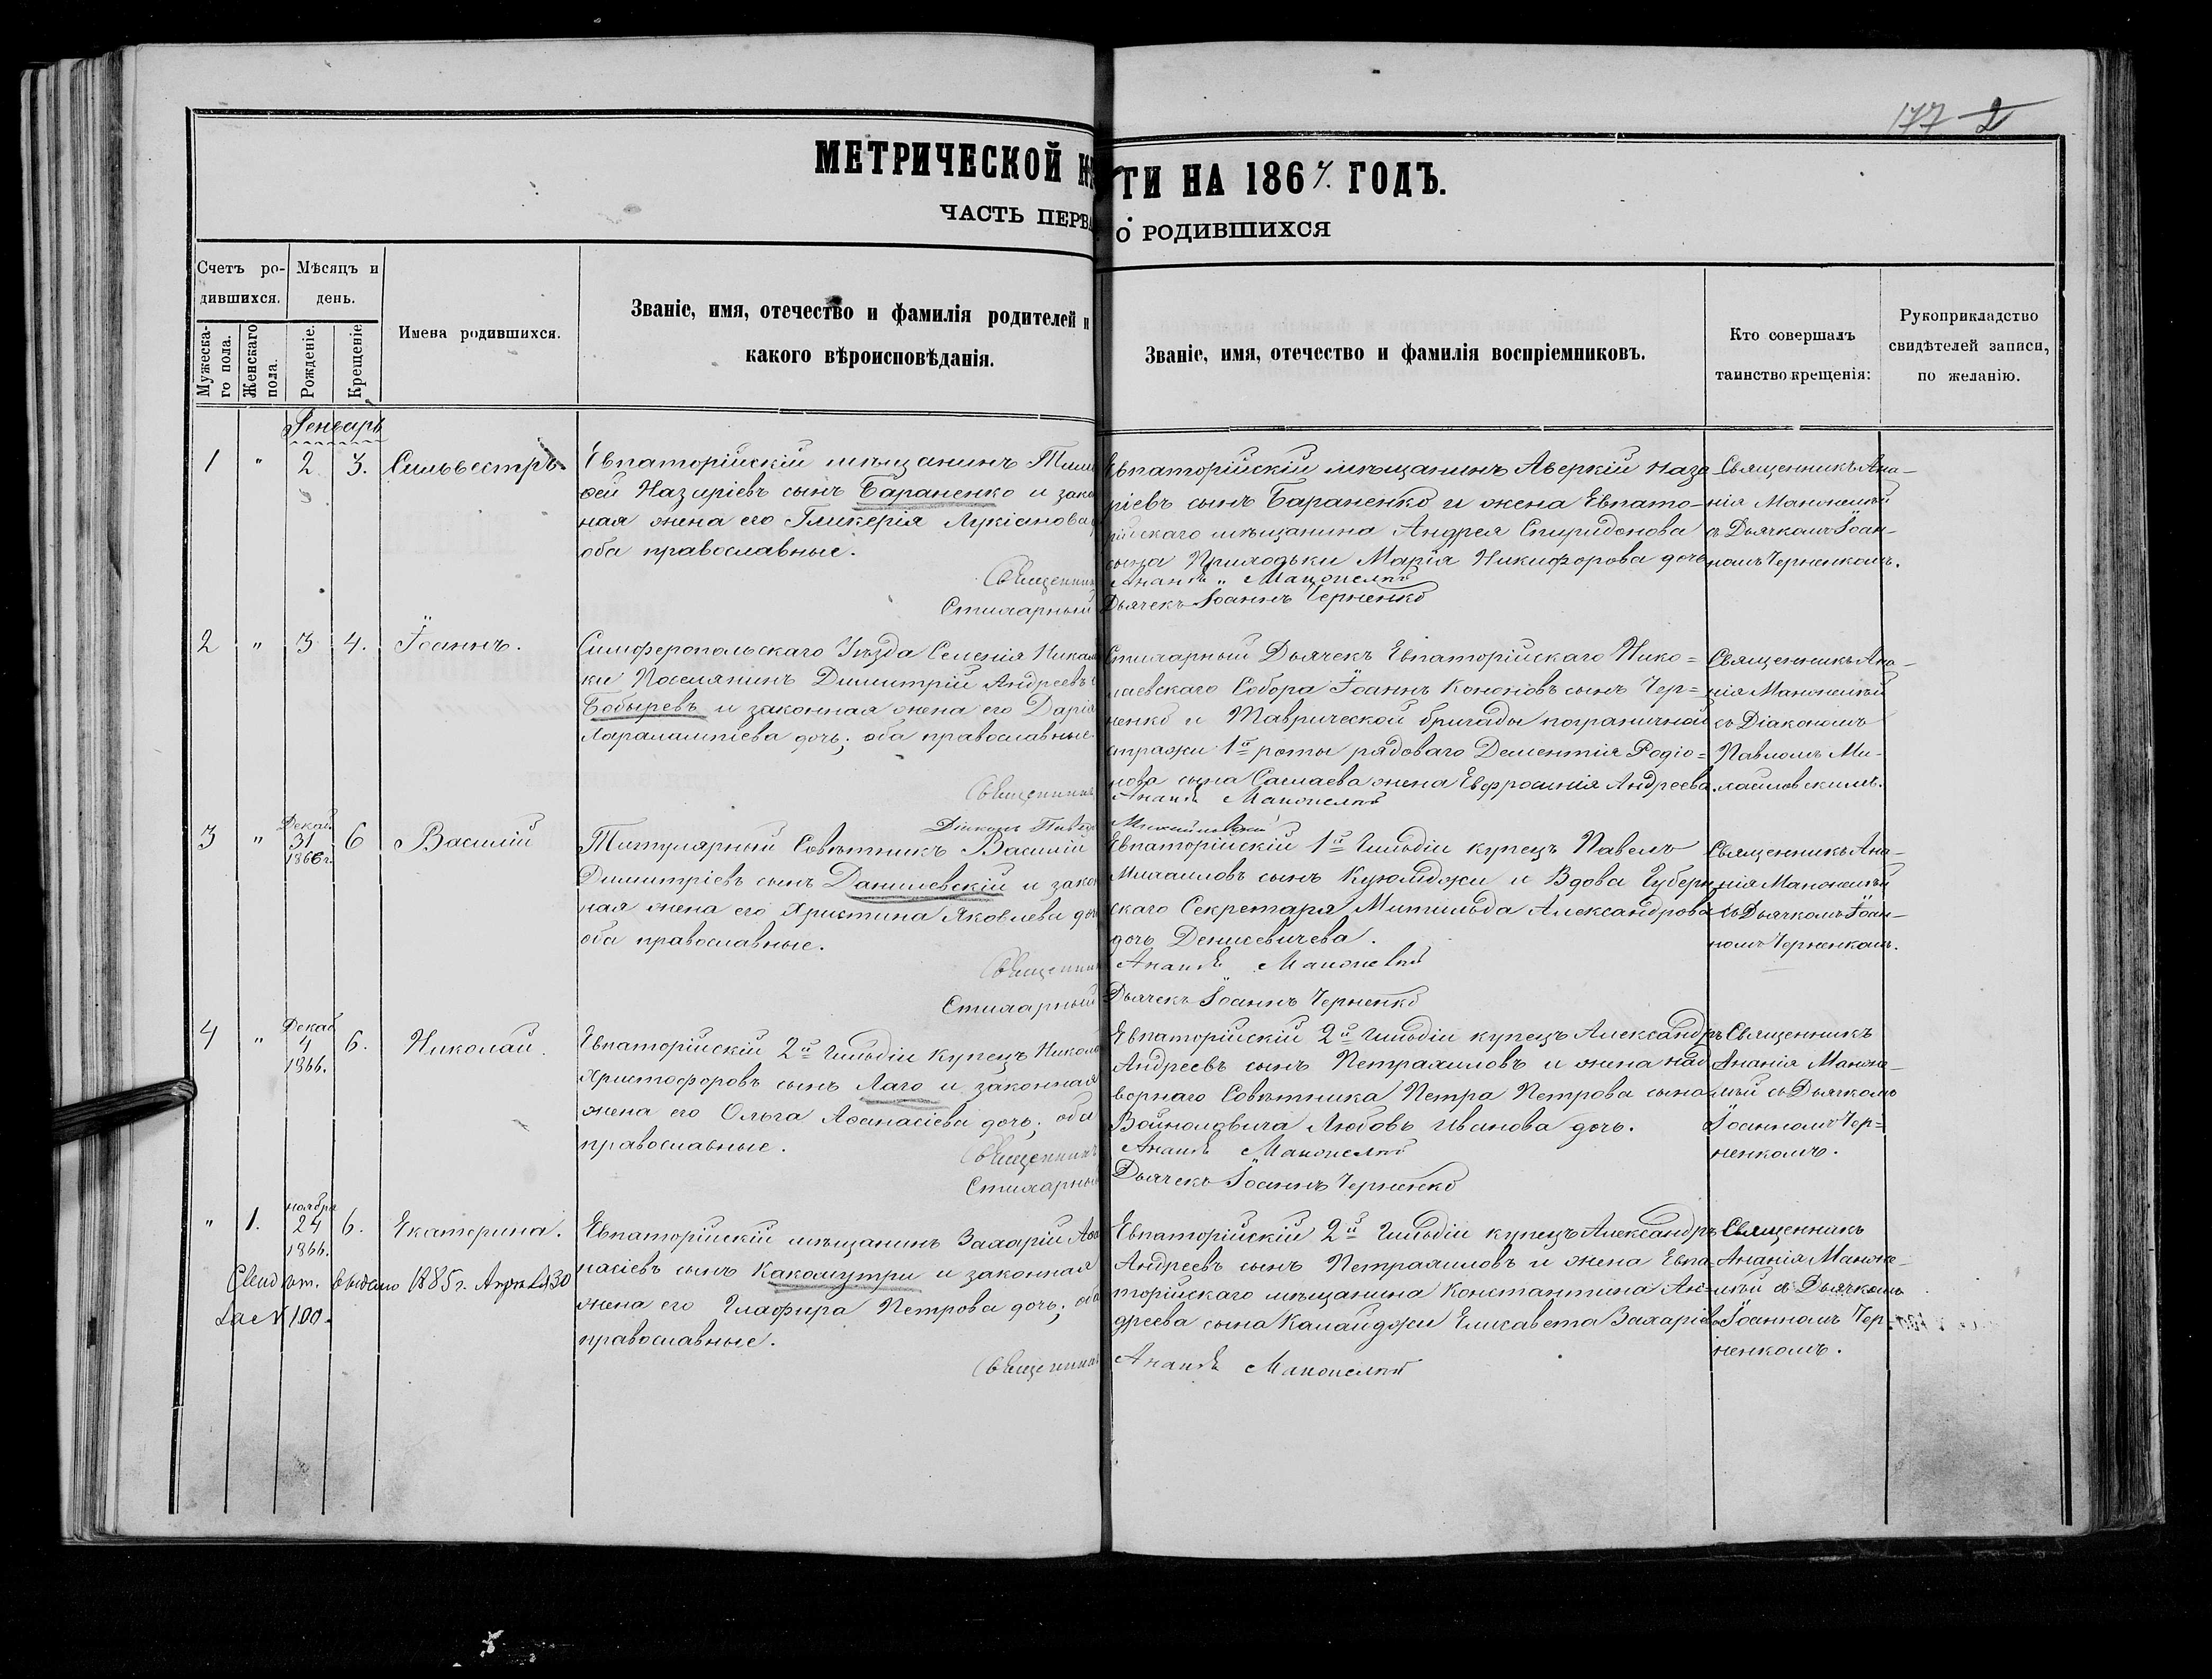 177 2
МЕТРИЧЕСКОЙ К
ТИ НА 1867. ГОДЪ.
ЧАСТЬ ПЕРВА
О РОДИВШИХСЯ
Счетъ ро-
дившихся.
Мужеска-
го пола.
Женскаго
пола.
Мѣсяцъ и
день.
Рожденіе.
Крещеніе.
Имена родившихся.
Званіе, имя, отечество и фамилія родителей и
какого вѣроисповѣданія.
Званіе, имя, отечество и фамилія воспріемниковъ.
Кто совершалъ
таинство крещенія:
Рукоприкладство
свидѣтелей записи,
по желанію.
Генварь
1 " 2 3. Сильвестръ
Евпаторійскій мѣщанинъ Тимо
ѳей Назаріевъ сынъ Бараненко и зако
ная жена его Гликерія Лукіанова
оба православные.
Священникъ
Стихарный
Евпаторійскій мѣщанинъ Аверкій Наза
ріевъ сынъ Бараненко и жена Евпато-
рійскаго мѣщанина Андрея Спиридонова
сына Приходьки Марія Никифорова дочь
Дьячекъ Іоаннъ Черненко
Священникъ Ана-
нія
съ Дьячкомъ Іоан-
номъ Черненкомъ.
2 " 3 4. Іоаннъ.
Симферопольскаго Уѣзда Селенія
ки Поселянинъ Димитрій Андреевъ
Бобыревъ и законная жена его Дарія
Харалампіева дочь; оба православные
Священникъ
Діаконъ Павелъ
Стихарный Дьячекъ Евпаторійскаго Нико=
лаевскаго Собора Іоаннъ Кононовъ сынъ Чер=
ненко и Таврической бригады пограничной
стражи 1й роты рядоваго Дементія Родіо=
нова сына жена Евфросинія Андреева.
Михайловскій
Священникъ Ана-
нія
съ Діакономъ
Павломъ Ми-
хайловскимъ.
3 " Декаб. 31 1866 г. 6 Василій
Титулярный Совѣтникъ Василій
Димитріевъ сынъ Данилевскій и закон
ная жена его Христина Яковлева доч
оба православные.
Священникъ
Стихарный
Евпаторійскій 1й Гильдіи купецъ Павелъ
Михаиловъ сынъ и Вдова Губерн
скаго Секретаря Митильда Александрова
дочь Денисевичева.
Дьячекъ Іоаннъ Черненко
Священникъ Ана-
нія
съ Дьячкомъ Іоан-
номъ Черненкомъ.
4 " Декаб 4 1866. 6. Николай.
Евпаторійскій 2й Гильдіи купецъ Никола
Христофоровъ сынъ Лаго и законная
жена его Ольга Аѳанасіева дочь; оба
православные.
Священникъ
Стихарный
Евпаторійскій 2й Гильдіи купецъ Александръ
Андреевъ сынъ Петрахиловъ и жена над
ворнаго Совѣтника Петра Петрова сына
Войнолавича Любовь Иванова дочь.
Дьячекъ Іоаннъ Черненко
Священникъ
Ананія
съ Дьячкомъ
Іоанномъ Чер=
ненкомъ.
" 1. ноября 24 1866. 6. Екатерина.
выдано 1885 г. 30
за № 100.
Евпаторійскій мѣщанинъ Захарій Аѳа
насіевъ сынъ Какомутри и законная
жена его Глафира Петрова дочь; оба
православные.
Священникъ
Евпаторійскій 2й Гильдіи купецъ Александръ
Андреевъ сынъ Петрахиловъ и жена Евпа-
торійскаго мѣщанина Константина Ан-
дреева сына Калайджи Елисавета Захаріев
Священникъ
Ананія
съ Дьячкомъ
Іоанномъ Чер-
ненкомъ.